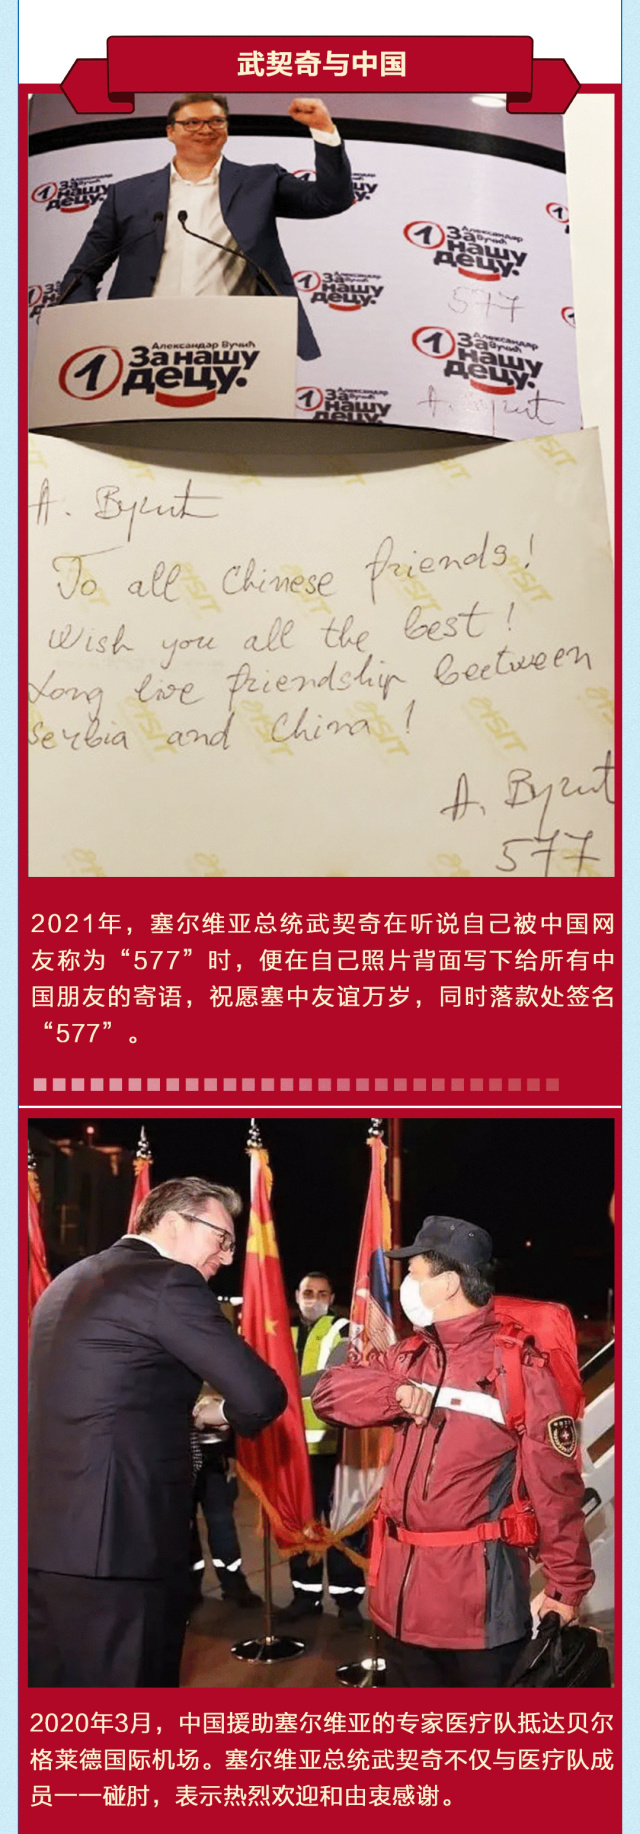 武契奇与中国
1 За нашу децу.
Александар Вучић
За
нашу
децу.
577
Александар Вучић
За
нашу
децу.
Александар Вучић
1 За нашу
децу.
А. Вучић
А. Вучић
To all Chinese friends!
Wish you all the best!
Long live friendship beetween
Serbia and China!
А. Вучић
577
2021年，塞尔维亚总统武契奇在听说自己被中国网
友称为“577”时，便在自己照片背面写下给所有中
国朋友的寄语，祝愿塞中友谊万岁，同时落款处签名
“577”。
2020年3月，中国援助塞尔维亚的专家医疗队抵达贝尔
格莱德国际机场。塞尔维亚总统武契奇不仅与医疗队成
员一一碰肘，表示热烈欢迎和由衷感谢。